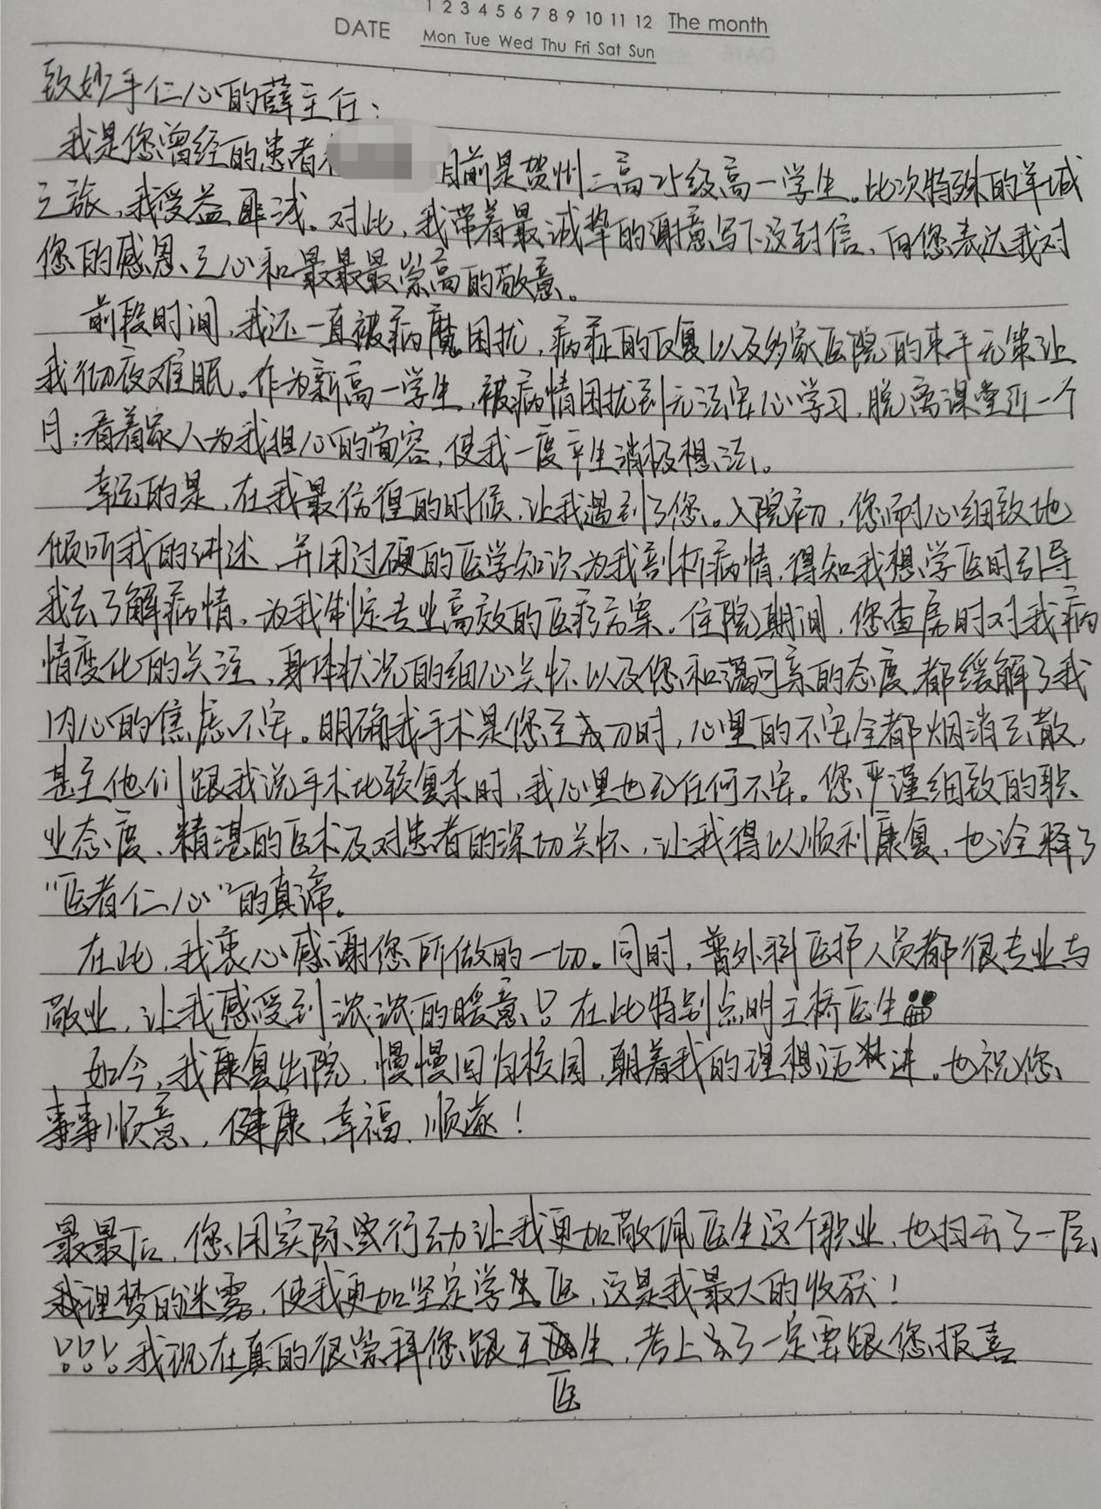 DATE 1 2 3 4 5 6 7 8 9 10 11 12 The month
Mon Tue Wed Thu Fri Sat Sun
致妙手仁心的薛主任：
我是您曾经的患者 目前是贺州二高24级高一学生。此次特殊的羊城
之旅，我受益匪浅。对此，我带着最诚挚的谢意写下这封信，向您表达我对
您的感恩之心和最最最崇高的敬意。
前段时间，我还一直被病魔困扰，病症的反复以及多家医院的束手无策让
我彻夜难眠。作为新高一学生，被病情困扰到无法安心学习，脱离课堂近一个
月；看着家人为我担心的面容，使我一度产生消极想法。
幸运的是，在我最彷徨的时候，让我遇到了您。入院初，您耐心细致地
倾听我的讲述，并用过硬的医学知识为我剖析病情，得知我想学医时引导
我去了解病情。为我制定专业高效的医疗方案。住院期间，您查房时对我病
情变化的关注，身体状况的细心关怀以及您和蔼可亲的态度都缓解了我
内心的焦虑不安。明确我手术是您主刀时，心里的不安全都烟消云散，
甚至他们跟我说手术比较复杂时，我心里也无任何不安。您严谨细致的职
业态度、精湛的医术及对患者的深切关怀，让我得以顺利康复，也诠释了
“医者仁心”的真谛。
在此，我衷心感谢您所做的一切。同时，普外科医护人员都很专业与
敬业，让我感受到浓浓的暖意！在此特别点明王桥医生
如今，我康复出院，慢慢回归校园，朝着我的理想迈进。也祝您、
事事顺意，健康、幸福、顺遂！
最最后，您用实际行动让我更加敬佩医生这个职业，也扫开了一层
我理梦的迷雾，使我更加坚定学医，这是我最大的收获！
！！！我现在真的很崇拜您跟王医生，考上了一定要跟您报喜
医